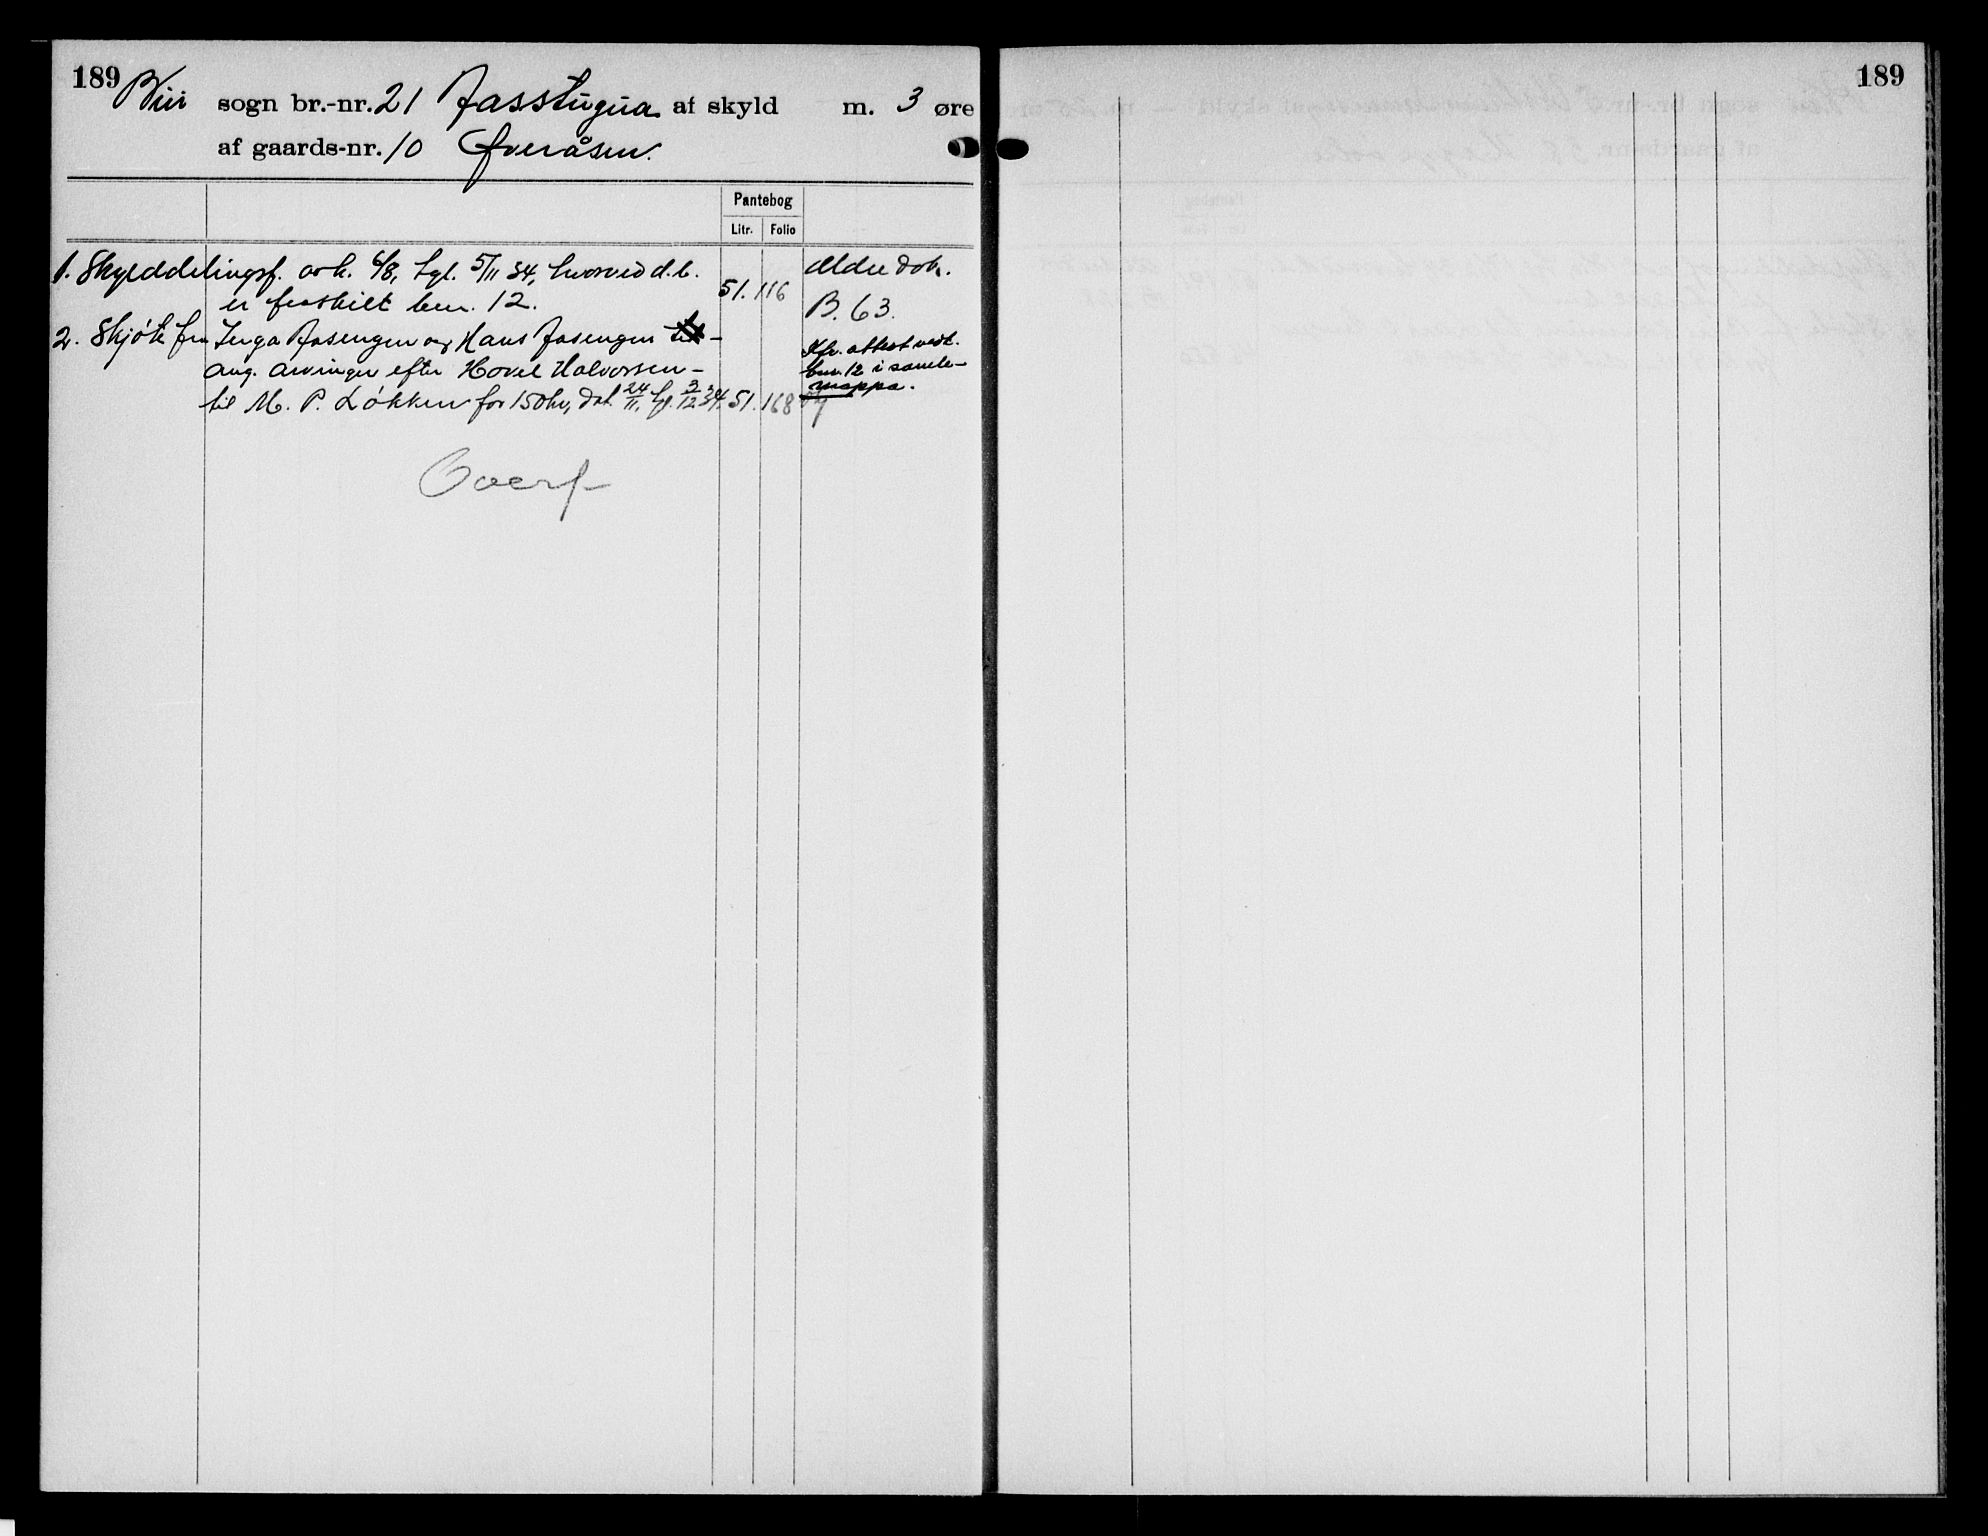 189 Biri sogn br.-nr. 21 Jasstugua af skyld m. 3 øre
af gaards-nr. 10 Øveråsen.
Pantebog
Litr. Folio
1. Skylddelingsf. avh. 6/8, tgl. 5/11 34, hvorved d.b. Eldre dok.
er fraskilt bnr. 12. 51. 116 B. 63.
2. Skjöte fra Inga Jasengen og Hans Jasengen
ang. arvinger efter Hovel Halvorsen -
til M. P. Lökken for 150 kr, dat. 24/11, tgl. 3/12 34. 51. 168
Kfr. attest vedk.
bnr. 12 i samle-
mappa.
Overf
189